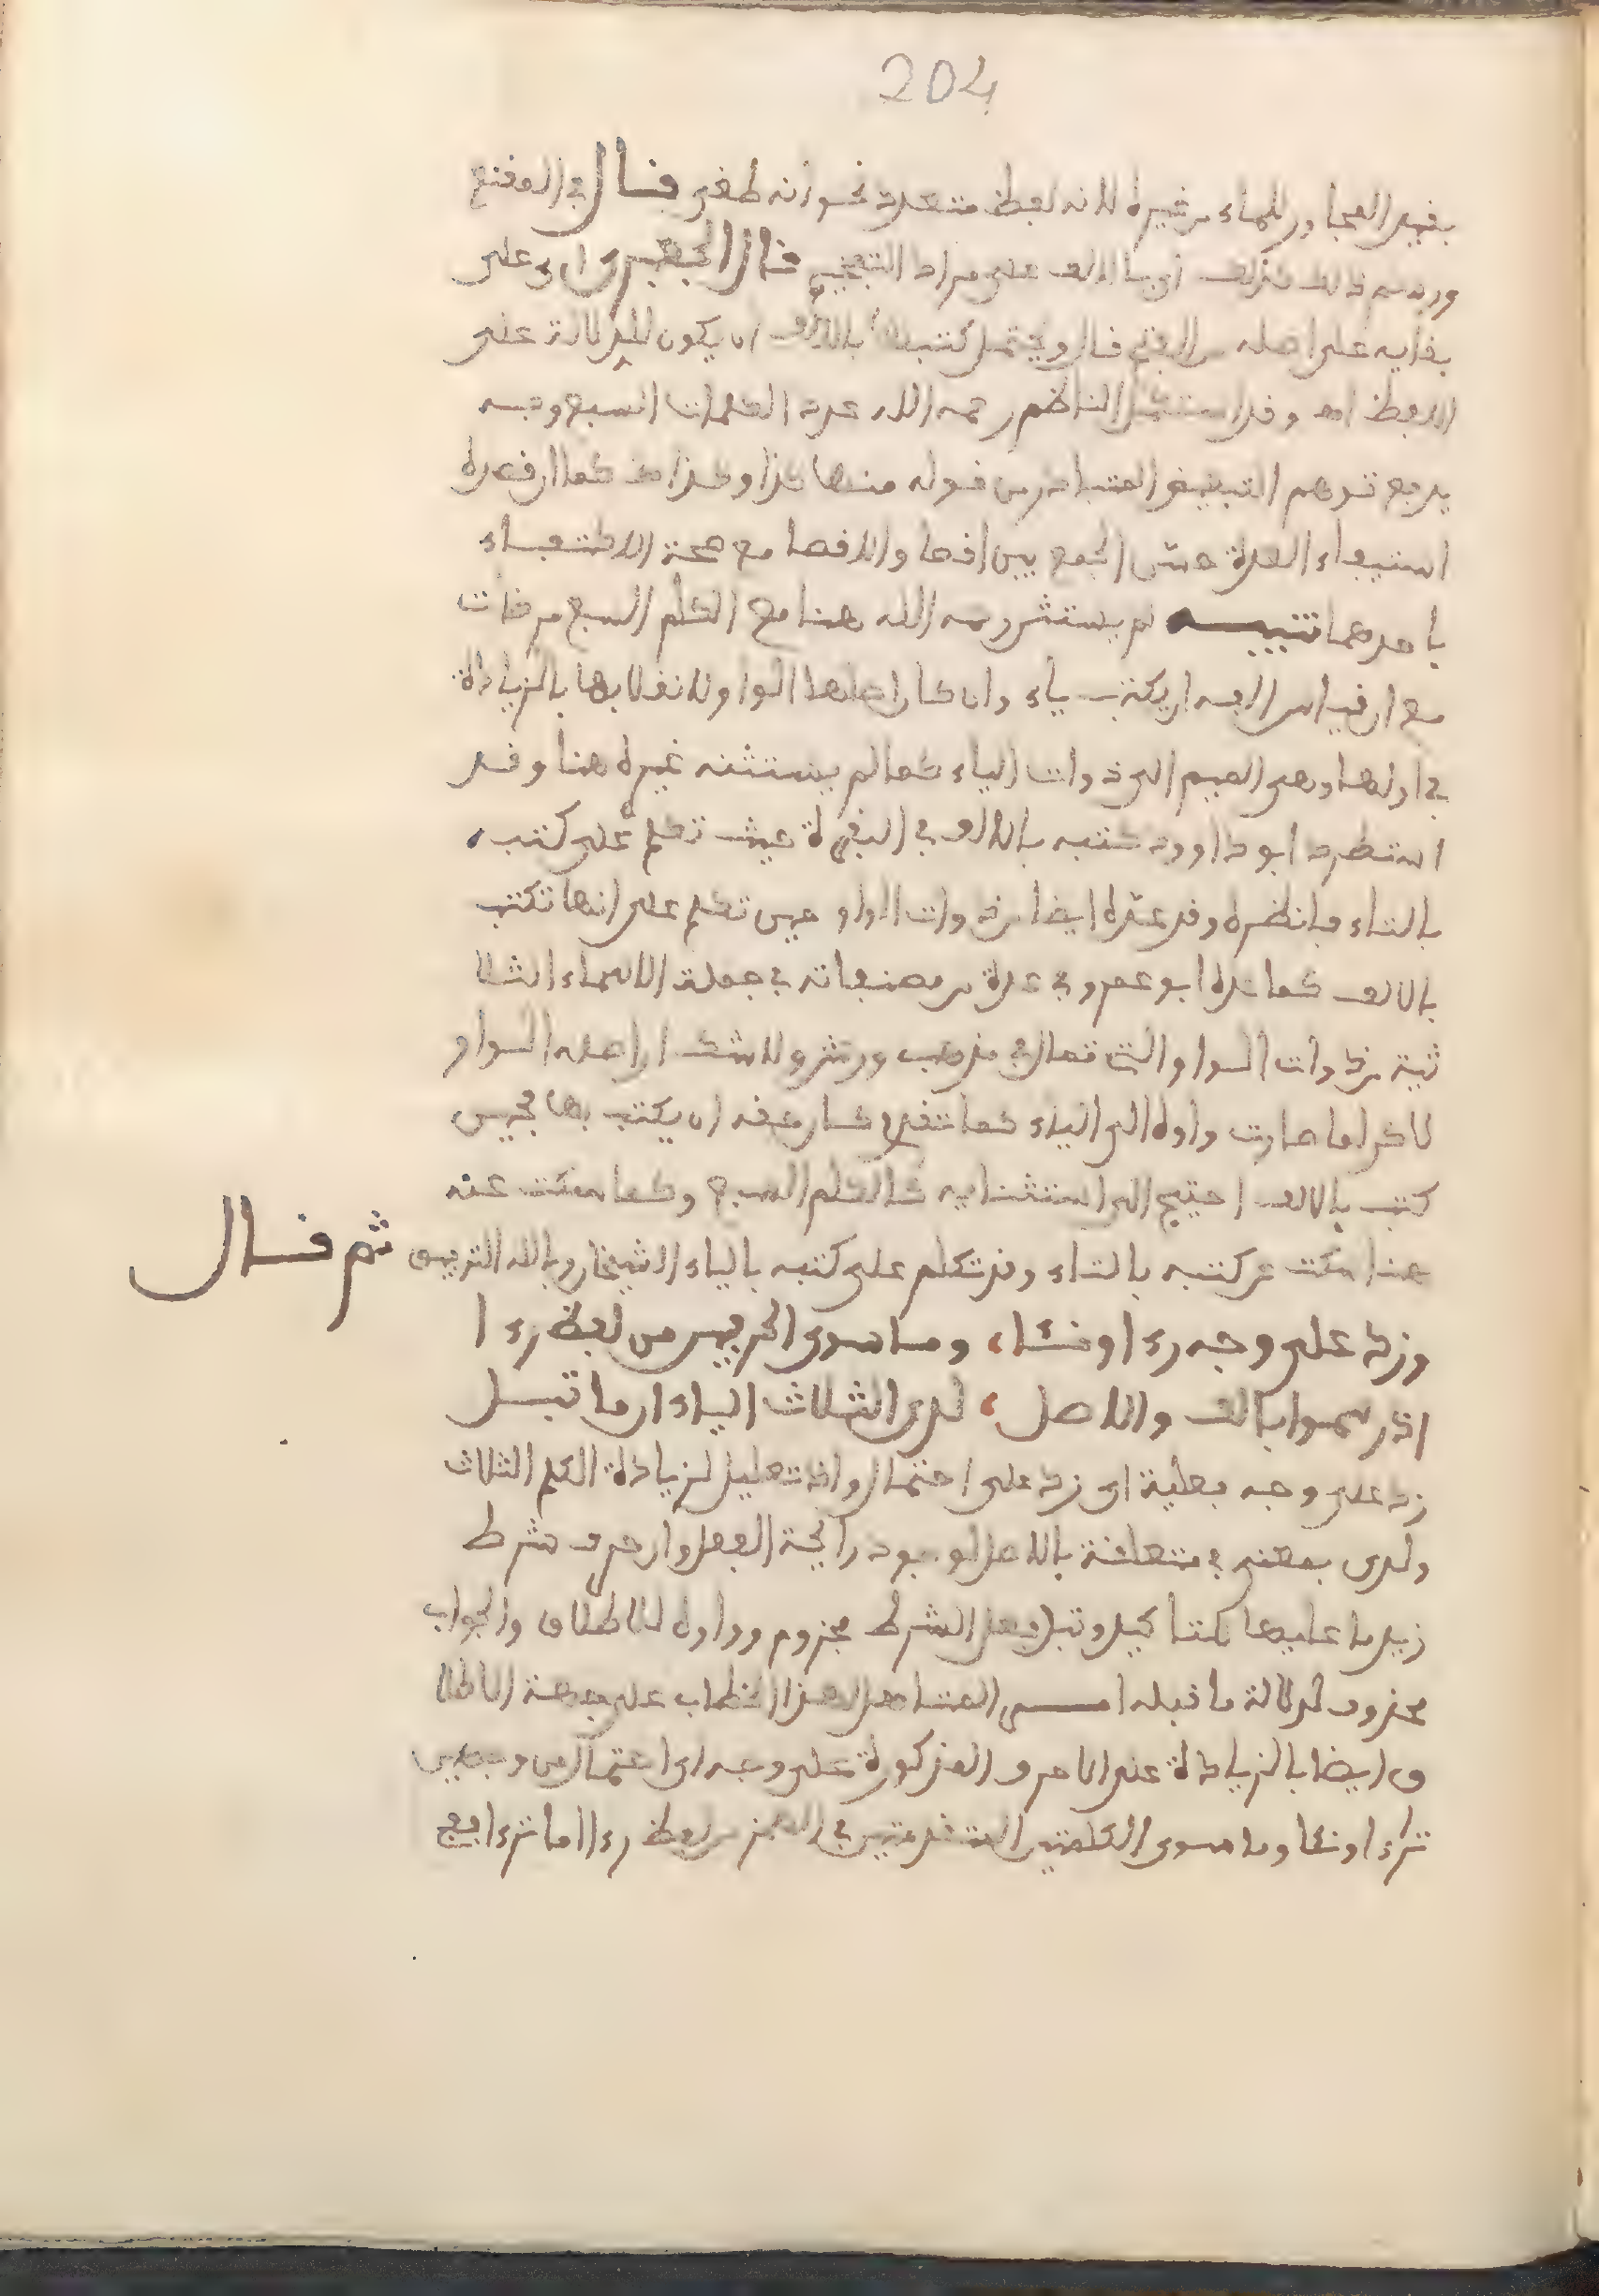 204
بقيد المجاور للماء من غيره لانه لفظ متعدد نحو انه طغى قال في المقنع
ورسم ذلك كذلك اي بالالف على مراد التفخيم قال الجعبري اي على
بقايه على اصله من الفتح قال ويحتمل كتبها بالالف ان يكون للدلالة على
اللفظ اه وقد استشكل الناظم رحمه الله عدد الكلمات السبع وجه
يدفع توهم التبعيض المتبادر من قوله منها كذا وكذا كما ارفعده
استيفاء العدة حتى الجمع بين اقصا والاقصا مع صحة الاكتفاء
باحدهما تنبيه لم يستثن رحمه الله هنا مع الكلم السبع مرضات
مع ان قياس الفه ان يكتب ياء وان كان اصلها الواو لانقلابها بالزيادة
في اولها وهي الميم الى ذوات الياء كما لم يستثنه غيره هنا وقد
استطرد ابو داوود كتبه بالالف في البقرة حيث تكلم على كتب
بالتاء فانظره وقد عده ايضا من ذوات الواو حين تكلم على انها تكتب
بالالف كما عده ابو عمرو في عدة من مصنفاته في جملة الاسماء الثلا
ثية من ذوات الواو التي تمال في مذهب ورش ولا شك ان اصله الواو
لاكن لما صارت واوه الى الياء كما تقدم كان حقه ان يكتب بها فحين
كتب بالالف احتيج الى استثنايه كالكلم السبع وكما سكت عنه
هنا سكت عن كتبه بالتاء وقد تكلم على كتبه بالتاء الشيخان وبالله التوفيق ثم قال
وزد على وجه رءا ونئا، وما سوى الحرفين من لفظ رءا
اذ رسموا بالف والاصل، لدى الثلاث الياء ان ما تبل
زد على وجه فعلية اي زد على احتمال واذ تعليل لزيادة الكلم الثلاث
ولدى بمعنى في متعلقة بالاصل لوجود رائحة الفعل وان حرف شرط
زيد ما عليها للتاكيد وتبل فعل الشرط مجزوم وواوه للاطلاق والجواب
محذوف لدلالة ما قبله امـــر المتاهل لهذا الخطاب على جهة الاطلا
ق ايضا بالزيادة على الاحرف المذكورة على وجه اي احتمال من وجهين
تراءا ونئا وما سوى الكلمتين المتقدمتين في الهمز من لفظ رءا اما تراءا فمع